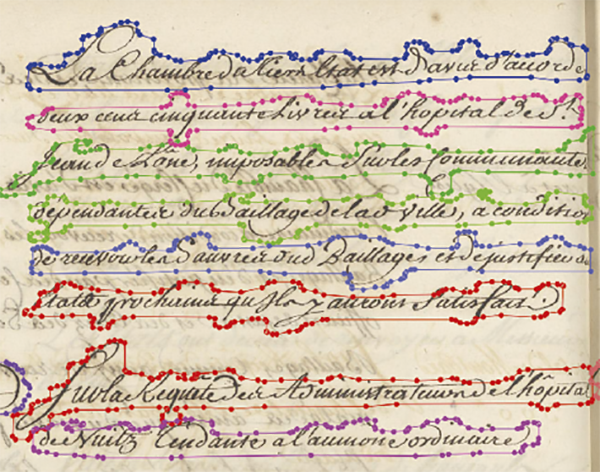 La Chambre du tiers Etat est d'avis d'accorder
deux cens cinquante Livres a l'hôpital de St.
Jean de Lône, imposables sur les Communautés
dépendantes du Bailliage de lad. ville, a condition
de recevoir les pauvres dud. Bailliages et de justifier a
Etats prochains qu'Ils y auront satisfait.
Sur la Requête des Administrateurs de l'hôpital
de Nuitz tendante a l'aumône ordinaire